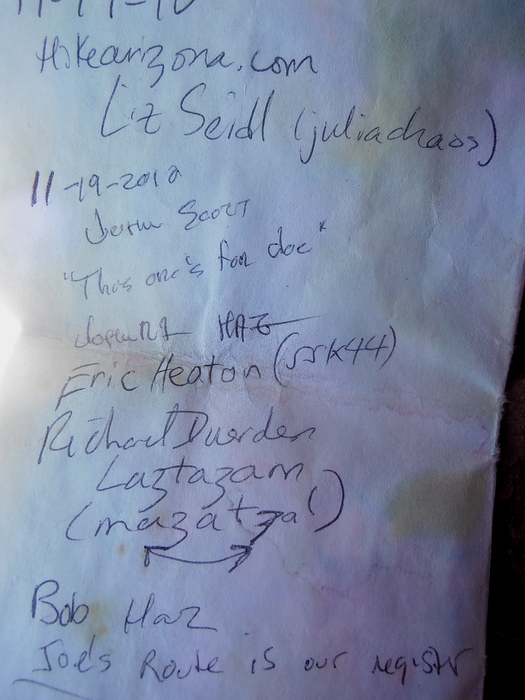 Hikearizona.com
Liz Seidl (juliachaos)
11-19-2012
Scott
"This one's for doc"
HAZ
Eric Heaton (SSK44)
Richard Duerden
Laztazam
(mazatza!)
Bob Haz
Joe's Route is our register